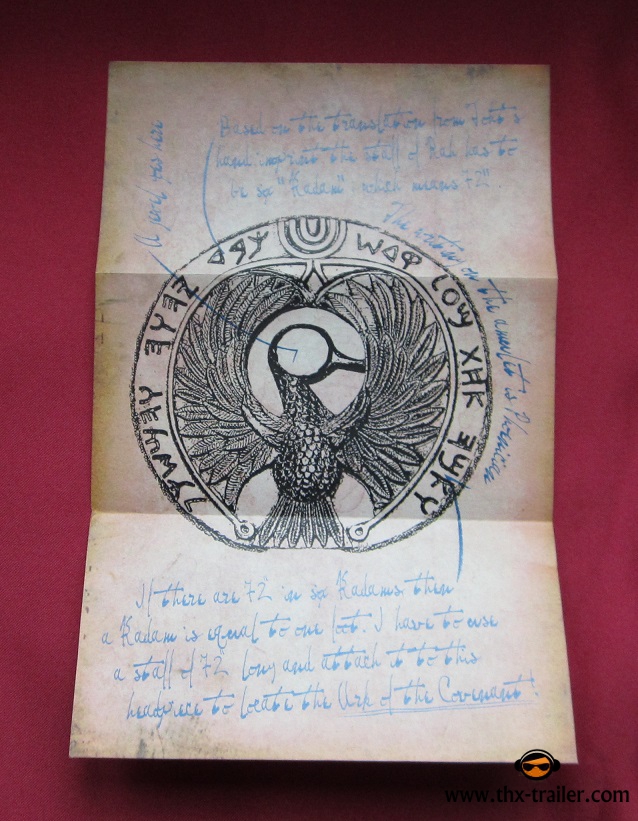 Based on the translation from Toht's
hand imprint the staff of Rah has to
be six "Kadam" which means 72".
A jewel goes here
The writing on the amulet is Phoenician
If there are 72" in six Kadams then
a Kadam is equal to one foot. I have to use
a staff of 72" long and attach it to this
headpiece to locate the Ark of the Covenant!
www.thx-trailer.com